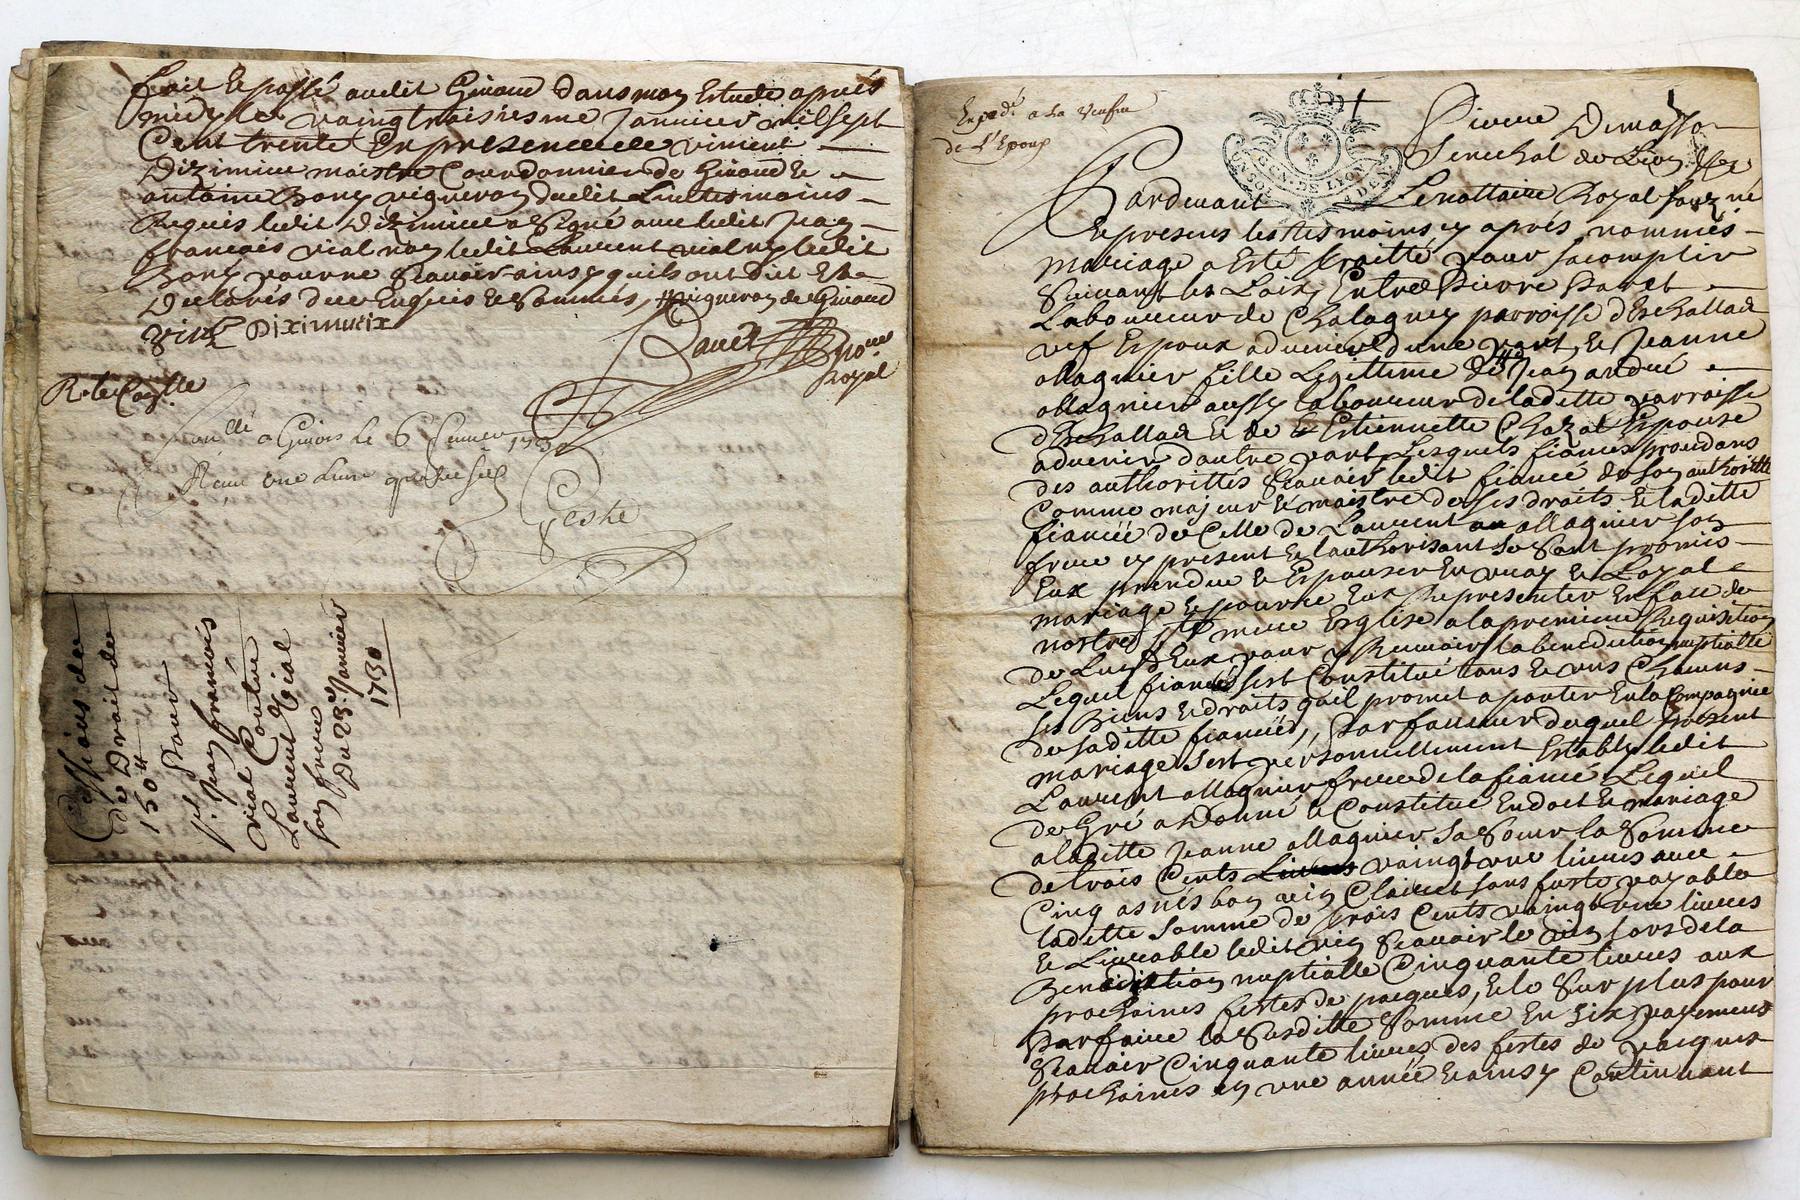 fait & passé audit Givord dans mon Estude après
midy le vaingtroisiesme Janvier mil sept
Cent trente En presence de vincent
Diximieu maistre Cordonnier de Givord &
antoine Bony vigneron dudit Lieu tesmoins
Requis ledit Diximieu a signé avec ledit Jean
francois vial non ledit Laurent vial ny ledit
Bony pour ne sçavoir ainsy quils ont dit Et
Declarés de ce Enquis & sommés, vigneron de Givord
Diximieix
Royal
a Givors le 6 1730
Cessions de
de Droit de
150#
Jean francois
vial Contre
Laurent Vial
son frere
Du 23e Janvier
1730
Exped. a la
de l'Epoux
Senechal de Lion
GEN. DE LYON
Pardevant Le nottaire Royal soussigné
& presens les tesmoins cy après nommés
mariage a Esté traitté pour sacomplir
suivant les Loix Entre Pierre
Laboureur de Chalagney parroisse dEschallad
vef Espoux advenir dune part, & Jeanne
ollagnier fille Legittime de Jean andré
ollagnier aussy laboureur de laditte parroisse
dEschallad & de Estiennette Chazal Espouse
advenir dautre part Lesquels fiances procedans
des authorittés sçavoir ledit fiancé de son authoritté
Comme majeur & maistre de ses droits & laditte
fiancée de Celle de Laurent ollagnier son
frere cy present & lauthorisant se sont promis
Eux prendre & Espouser En vray & Loyal
mariage & pour ce Eux Representer En face de
nostre ste mere Esglise a la premiere Requisition
de Lun deux pour y Recevoir la benediction nuptialle
Lequel fiancé sest Constitué tous & uns Chacuns
ses Biens & droits quil promet aporter En la Compagnie
de saditte fiancée, En faveur duquel present
mariage sest personnellement Estably ledit
Laurent ollagnier frere de la fiancée Lequel
de Gré a Donné & Constitué En dot & mariage
a laditte Jeanne ollagnier sa soeur la somme
de trois Cents Livres vaingt une livres avec
Cinq asnés bon vin Clairet sans fuste payable
laditte somme de trois Cents vaingt une livres
& Livrable ledit vin sçavoir le vin lors de la
Benediction nuptialle Cinquante livres aux
prochaines festes de pacques, & le surplus pour
parfaire la susditte somme En six payemens
sçavoir Cinquante livres des festes de pacques
prochaines en une année & ainsy Continuant